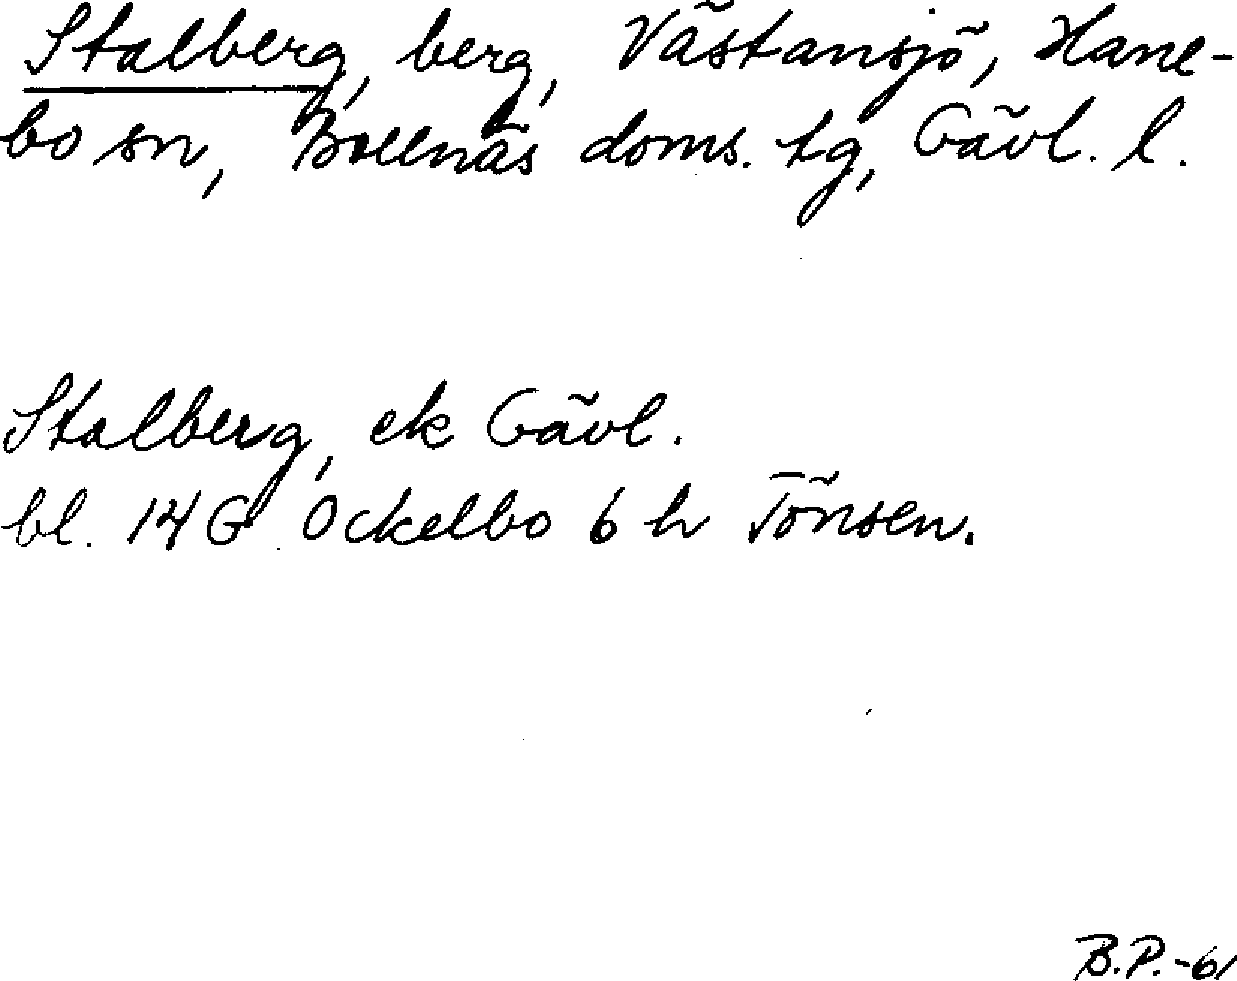 Stalberg, berg, Västansjö, Hane-
bo sn, Bollnäs doms. tg, Gävl. l.
Stalberg, ek Gävl.
bl. 14 G Ockelbo 6 h Tönsen.
B.P.-61